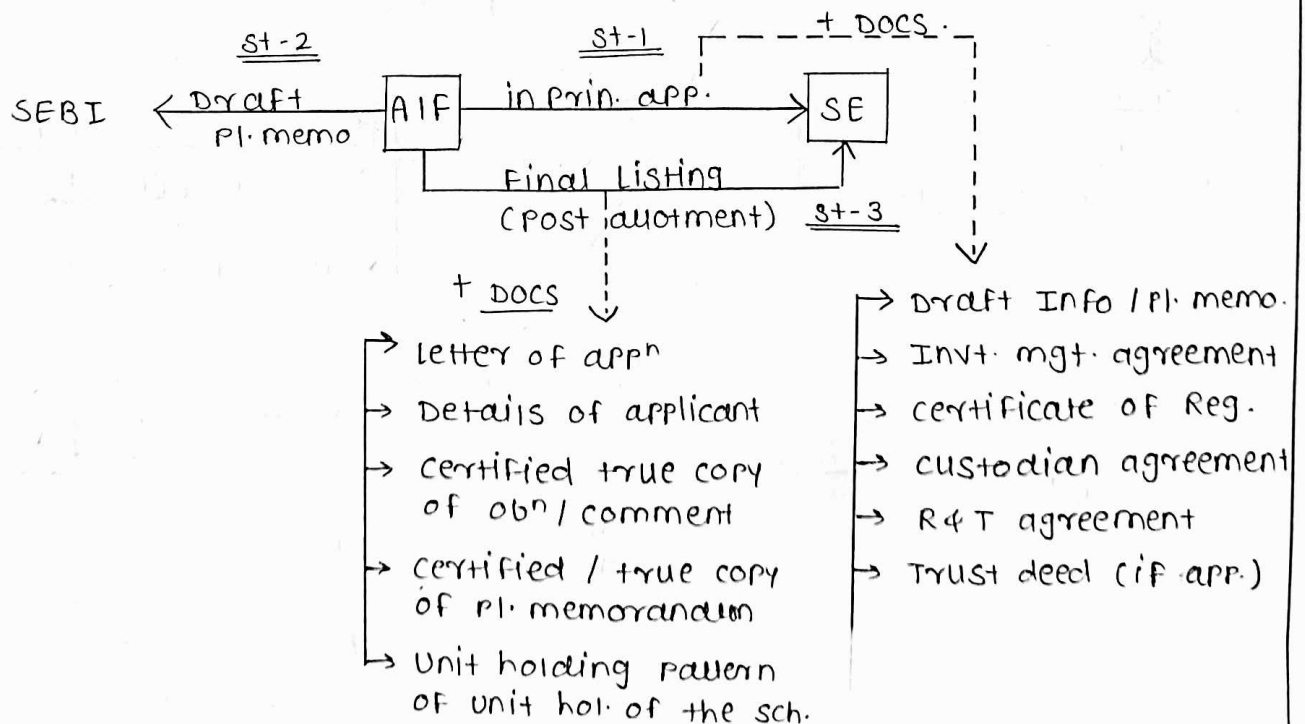 + DOCS.
St-2
St-1
SEBI
Draft
Pl. memo
AIF
in prin. app.
SE
Final Listing
(post allotment)
St-3
+ DOCS
Letter of appⁿ
Details of applicant
certified true copy
of obⁿ / comment
certified / true copy
of Pl. memorandum
Unit holding pattern
of unit hol. of the sch.
Draft Info / Pl. memo.
Invt. mgt. agreement
certificate of Reg.
custodian agreement
R & T agreement
Trust deed (if app.)